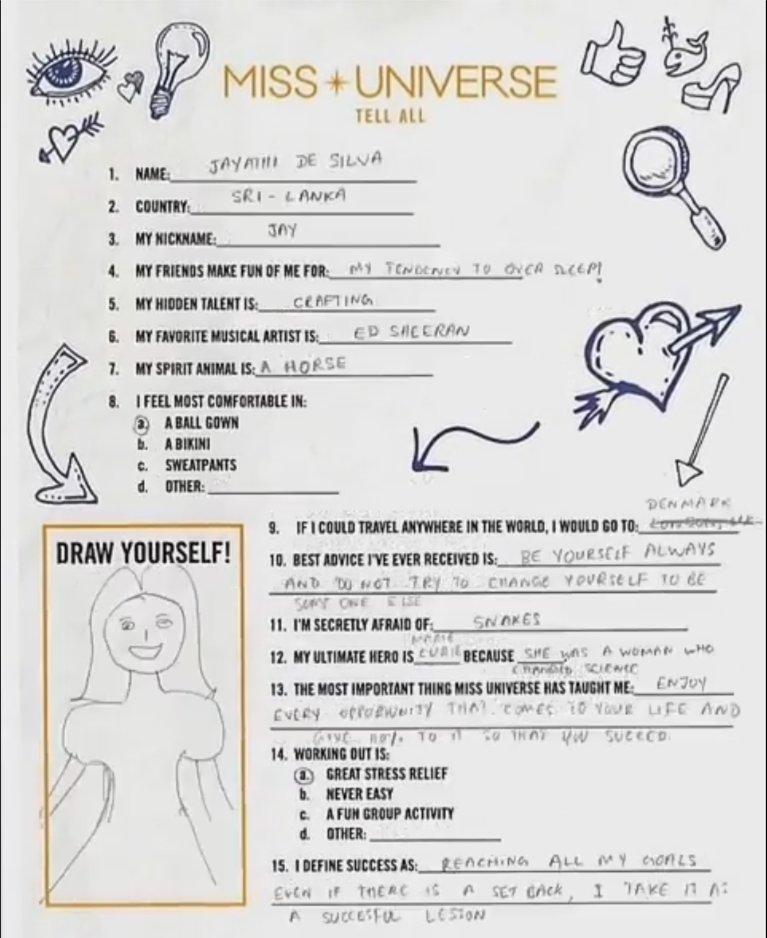 MISS UNIVERSE
TELL ALL
1. NAME: JAYATHI DE SILVA
2. COUNTRY: SRI - LANKA
3. MY NICKNAME: JAY
4. MY FRIENDS MAKE FUN OF ME FOR: MY TENDENCY TO OVER SLEEP!
5. MY HIDDEN TALENT IS: CRAFTING
6. MY FAVORITE MUSICAL ARTIST IS: ED SHEERAN
7. MY SPIRIT ANIMAL IS: A HORSE
8. I FEEL MOST COMFORTABLE IN:
a. A BALL GOWN
b. A BIKINI
c. SWEATPANTS
d. OTHER:
DRAW YOURSELF!
DENMARK
9. IF I COULD TRAVEL ANYWHERE IN THE WORLD, I WOULD GO TO:
10. BEST ADVICE I'VE EVER RECEIVED IS: BE YOURSELF ALWAYS
AND DO NOT TRY TO CHANGE YOURSELF TO BE
SOME ONE ELSE
11. I'M SECRETLY AFRAID OF: SNAKES
MARIE
12. MY ULTIMATE HERO IS CURIE BECAUSE SHE WAS A WOMAN WHO
CHANGED SCIENCE
13. THE MOST IMPORTANT THING MISS UNIVERSE HAS TAUGHT ME: ENJOY
EVERY OPPORTUNITY THAT COMES TO YOUR LIFE AND
GIVE 110% TO IT SO THAT YOU SUCCEED.
14. WORKING OUT IS:
a. GREAT STRESS RELIEF
b. NEVER EASY
c. A FUN GROUP ACTIVITY
d. OTHER:
15. I DEFINE SUCCESS AS: REACHING ALL MY GOALS
EVEN IF THERE IS A SET BACK, I TAKE IT AS
A SUCCESFUL LESSON